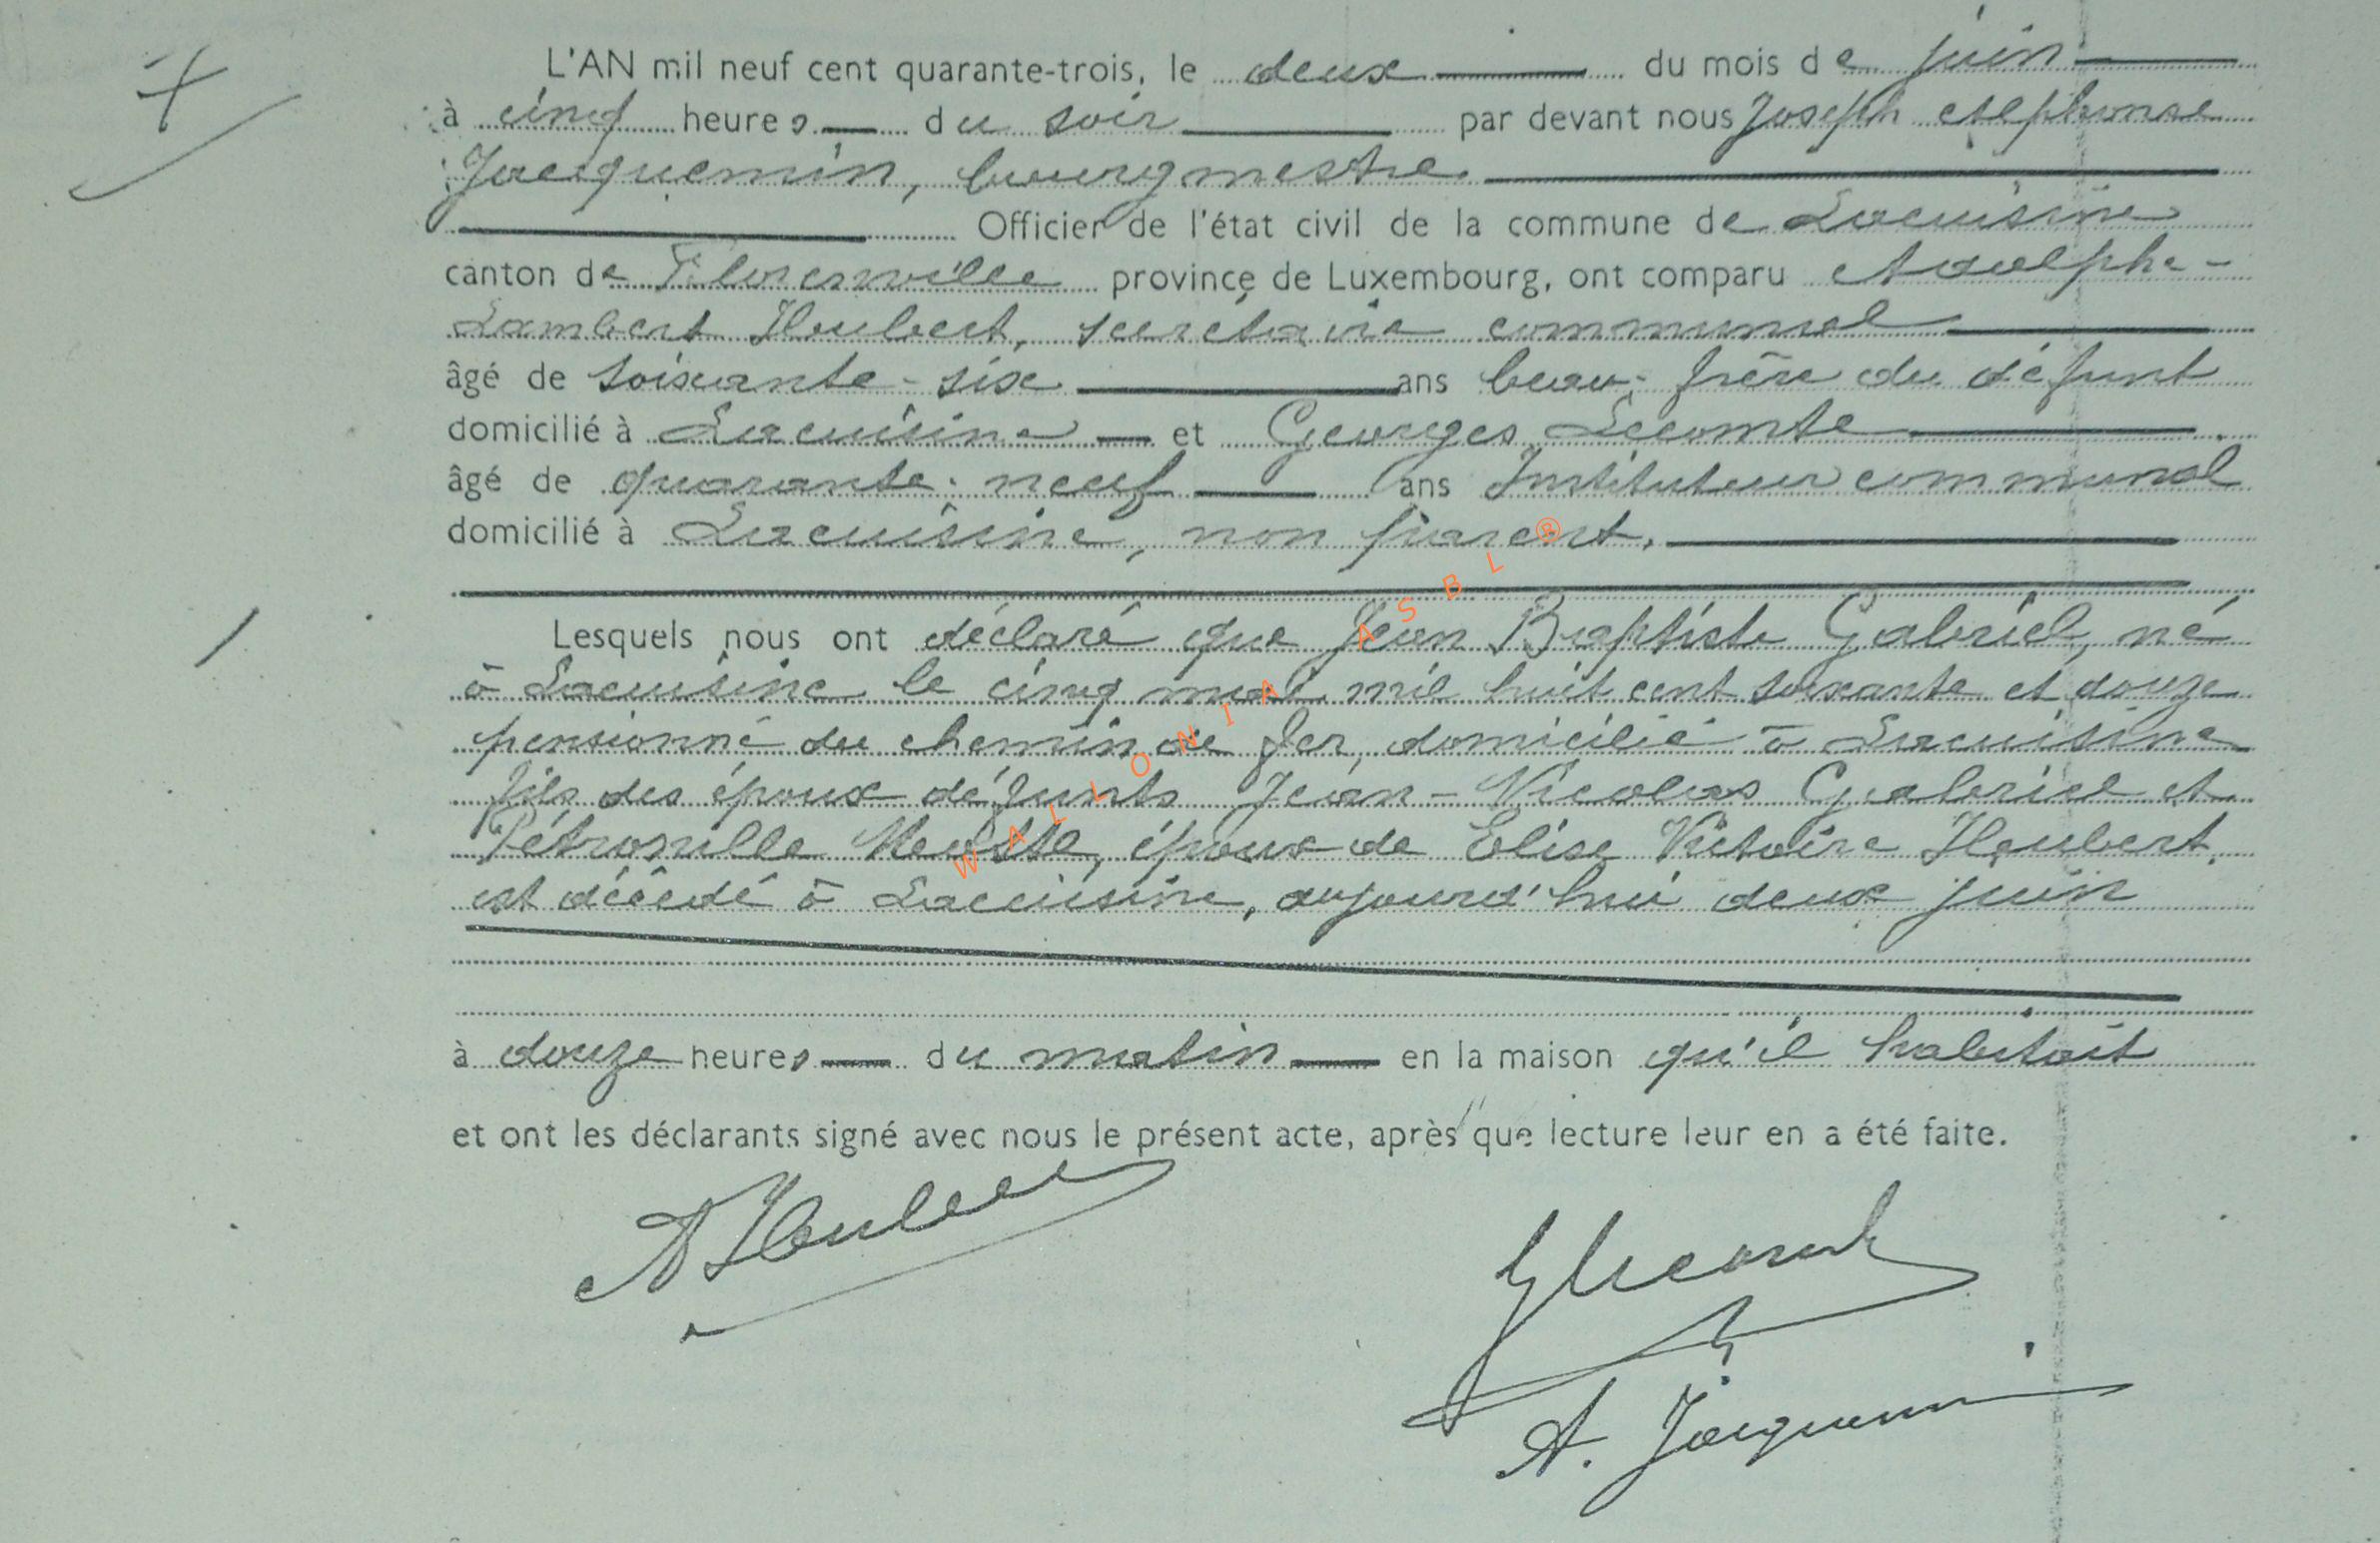 L'AN mil neuf cent quarante-trois, le deux du mois de juin
à cinq heures du soir par devant nous Joseph Alphonse
Jacquemin, bourgmestre.
Officier de l'état civil de la commune de Lacuisine
canton de Florenville province de Luxembourg, ont comparu Adolphe-
Lambert Heubert, secrétaire communal
âgé de soixante-six ans beau-frère du défunt
domicilié à Lacuisine et Georges Lecomte
âgé de quarante-neuf ans Instituteur communal
domicilié à Lacuisine, non parent.
Lesquels nous ont déclaré que Jean Baptiste Gabriel, né
à Lacuisine le cinq mai mil huit cent soixante et douze
pensionné du chemin de fer, domicilié à Lacuisine
fils des époux défunts Jean-Nicolas Gabriel et
Pétronille, époux de Elise Victoire Heubert,
est décédé à Lacuisine, aujourd'hui deux juin
à douze heures du matin en la maison qu'il habitait
et ont les déclarants signé avec nous le présent acte, après que lecture leur en a été faite.
A Heubert
GLecomte
A. Jacquemin
WALLONIA ASBL ®